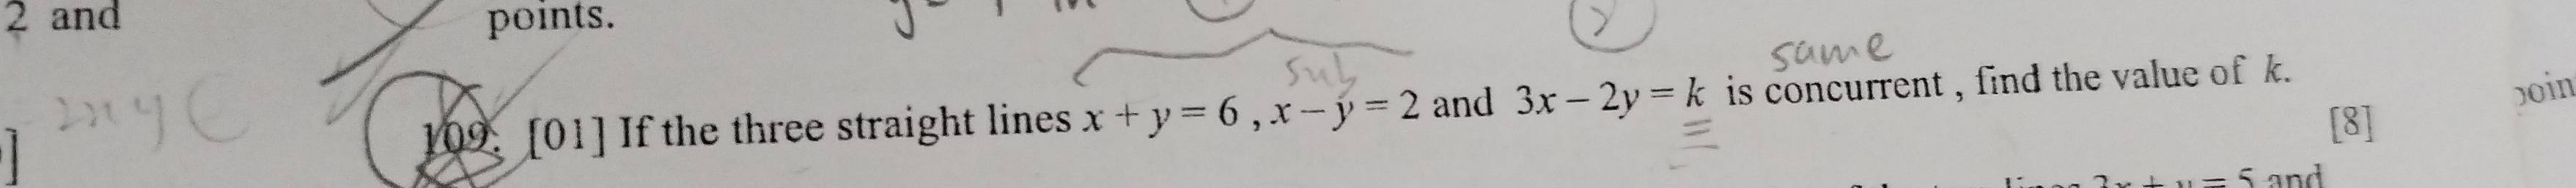 2 and
points.
same
sub
109. [01] If the three straight lines x + y = 6 , x – y = 2 and 3x – 2y = k is concurrent , find the value of k.
[8]
poin